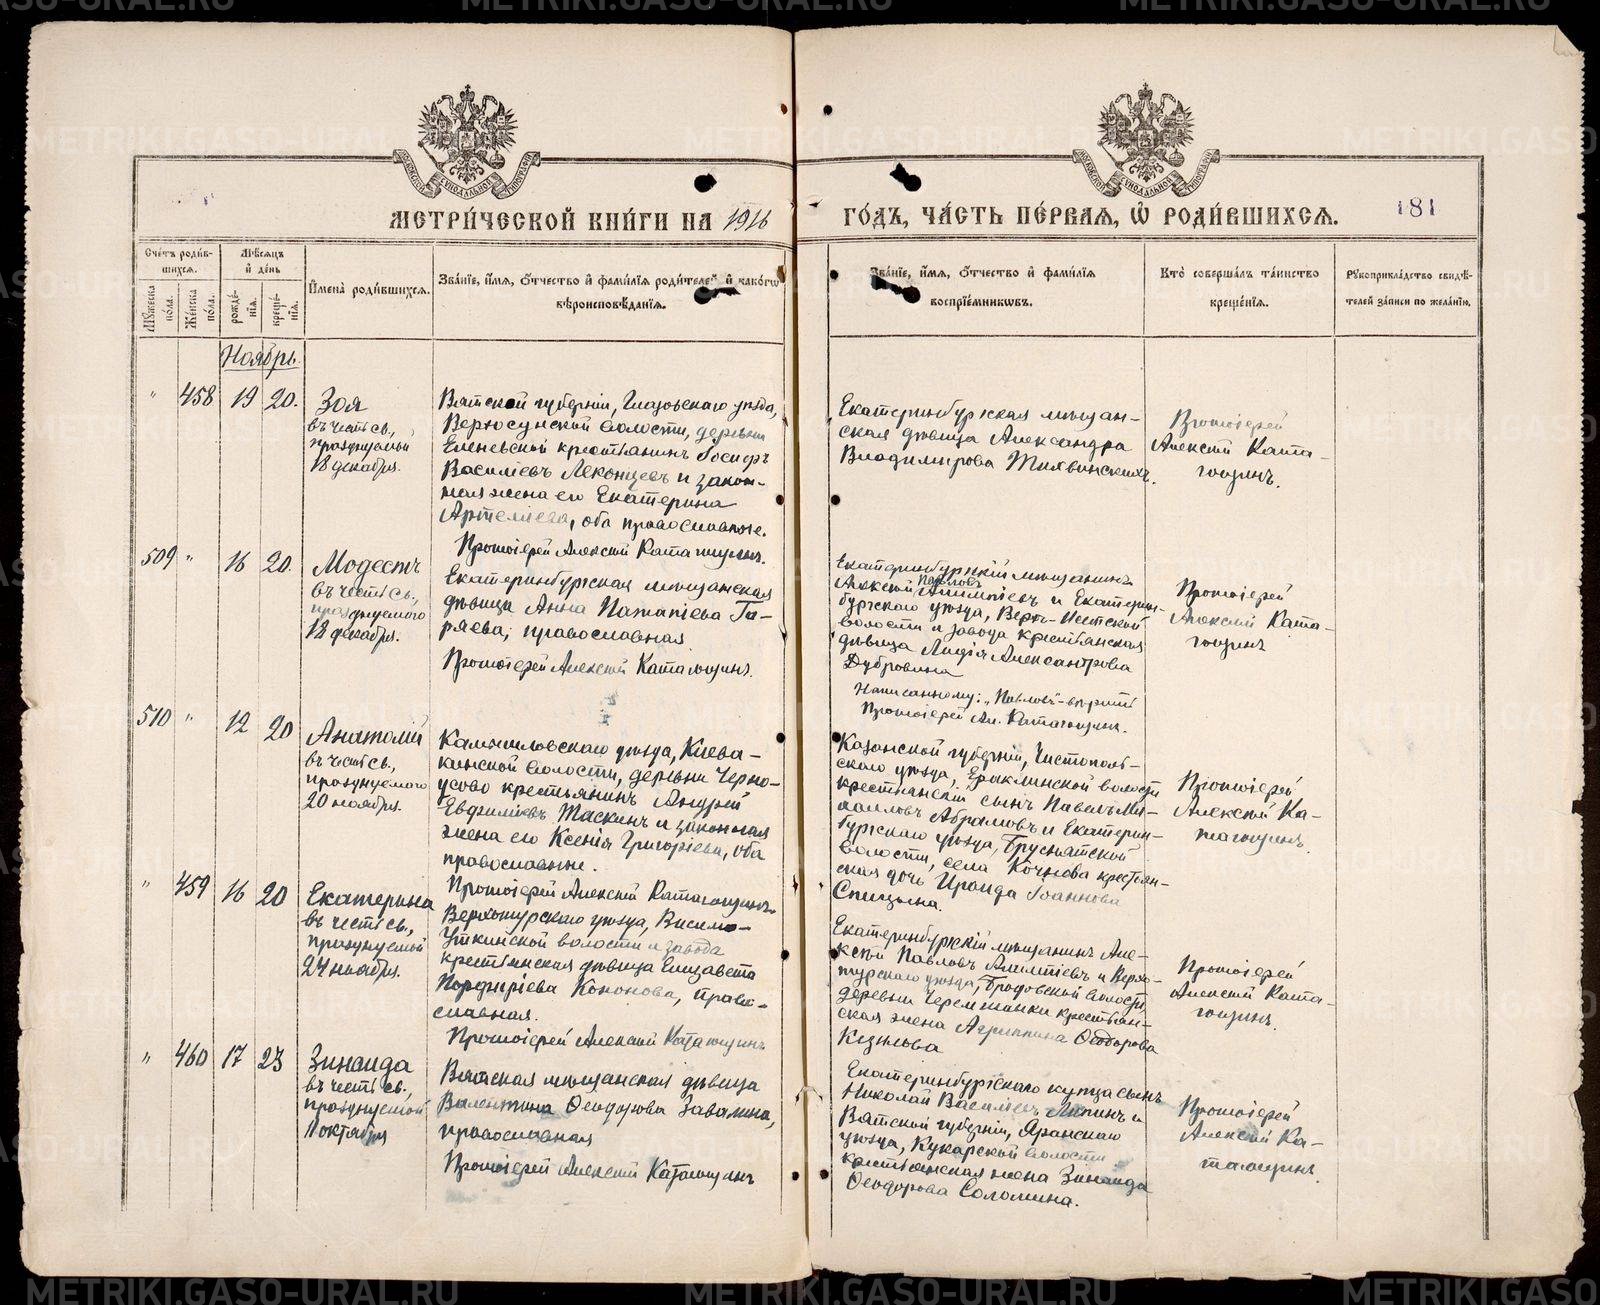 МЕТРИ́ЧЕСКОЙ КНИ́ГИ НА 1916 ГО́ДЪ, ЧА́СТЬ ПЕ́РВАЯ, Ѡ҆ РОДИ́ВШИХСЯ.
181
Сче́тъ роди́вшихся.
Му́жеска по́ла.
Же́нска по́ла.
Мѣ́сяцъ и҆ де́нь
рожде́нїѧ.
креще́нїѧ.
И҆мена̀ роди́вшихся.
Зва́нїе, и҆́мя, ѻ҆́тчество и҆ фами́лїя роди́телей, и҆ како́гѡ
вѣроисповѣ́данїя.
Зва́нїе, и҆́мя, ѻ҆́тчество и҆ фами́лїя
воспрїе́мниковъ.
Кто̀ соверша́лъ та́инство
креще́нїя.
Рꙋкоприкла́дство свидѣ́-
телей за́писи по жела́нїю.
Ноябрь
" 458 19 20.
Зоя
въ честь св.,
празднуемой
18 декабря.
Вятской губерніи, Глазовскаго уѣзда,
Верхосунской волости, деревни
Еленевской крестьянинъ Іосифъ
Василіевъ Леконцевъ и закон-
ная жена его Екатерина
Артеміева, оба православные.
Протоіерей Алексій Каталощинъ.
Екатеринбургская мѣщан-
ская дѣвица Александра
Владимірова
Протоіерей
Алексій Ката-
гощинъ.
509 " 16 20.
Модестъ
въ честь св.,
празднуемого
18 декабря.
Екатеринбургская мѣщанская
дѣвица Анна Патапіева Га-
ряева, православная
Протоіерей Алексій Катагощинъ.
Екатеринбургскій мѣщанинъ
Алексій Павловъ и Екатерин-
бургскаго уѣзда, Верхъ-Исетской
волости и завода крестьянская
дѣвица Лидія Александрова
Дубровина
Написанному: "Павловъ" вѣрить
Протоіерей Ал. Катагощинъ.
Протоіерей
Алексій Ката-
гощинъ
510 " 12 20
Анатолій
въ честь св.,
празднуемого
20 ноября.
Камышловскаго уѣзда,
волости, деревни Черно-
усово крестьянинъ Андрей
Евфиміевъ Таскинъ и законная
жена его Ксенія Григоріева, оба
православные.
Протоіерей Алексій Катагощинъ.
Казанской губерніи, Чистополь-
скаго уѣзда, Ерыклинской волости
крестьянскій сынъ Павелъ Ми-
хаиловъ Абрамовъ и Екатерин-
бургскаго уѣзда, Бруснятской
волости, села Кочнева крестьян-
ская дочь Ираида Іоаннова
Спицына.
Протоіерей
Алексій Ка-
тагощинъ.
" 459 16 20
Екатерина
въ честь св.,
празднуемой
24 ноября.
Верхотурскаго уѣзда, Висимо-
Уткинской волости и завода
крестьянская дѣвица Елизавета
Порфиріева Кононова, право-
славная.
Протоіерей Алексій Катагощинъ
Екатеринбургскій мѣщанинъ Але-
ксѣй Павловъ и Верхо-
турскаго уѣзда, Бродовской волости,
деревни Черемшанки крестьян-
ская жена Агриппина Ѳеодорова
Протоіерей
Алексій Ката-
гощинъ.
" 460 17 23
Зинаида
въ честь св.,
празднуемой
11 октября
Вятская мѣщанская дѣвица
Валентина Ѳеодорова Завалина,
православная
Протоіерей Алексій Катагощинъ
Екатеринбургскаго купца сынъ
Николай Василіевъ Лапинъ и
Вятской губерніи, Яранскаго
уѣзда, Кукарской волости
крестьянская жена Зинаида
Ѳеодорова Соломина.
Протоіерей
Алексій Ка-
тагощинъ.
METRIKI.GASO-URAL.RU